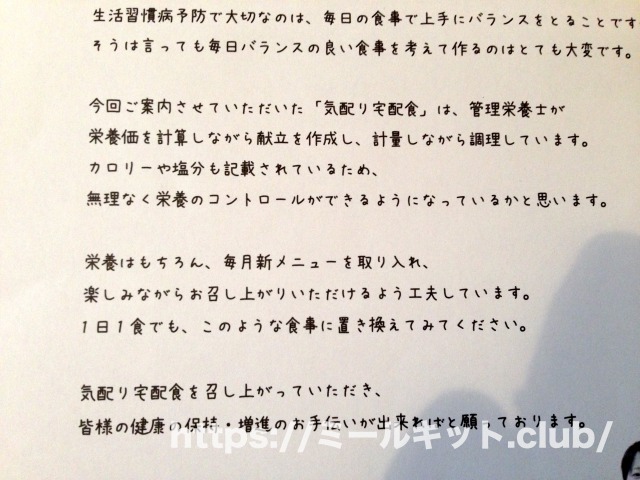 生活習慣病予防で大切なのは、毎日の食事で上手にバランスをとることです
そうは言っても毎日バランスの良い食事を考えて作るのはとても大変です。
今回ご案内させていただいた「気配り宅配食」は、管理栄養士が
栄養価を計算しながら献立を作成し、計量しながら調理しています。
カロリーや塩分も記載されているため、
無理なく栄養のコントロールができるようになっているかと思います。
栄養はもちろん、毎月新メニューを取り入れ、
楽しみながらお召し上がりいただけるよう工夫しています。
1日1食でも、このような食事に置き換えてみてください。
気配り宅配食を召し上がっていただき、
皆様の健康の保持・増進のお手伝いが出来ればと願っております。
https://ミールキット.club/